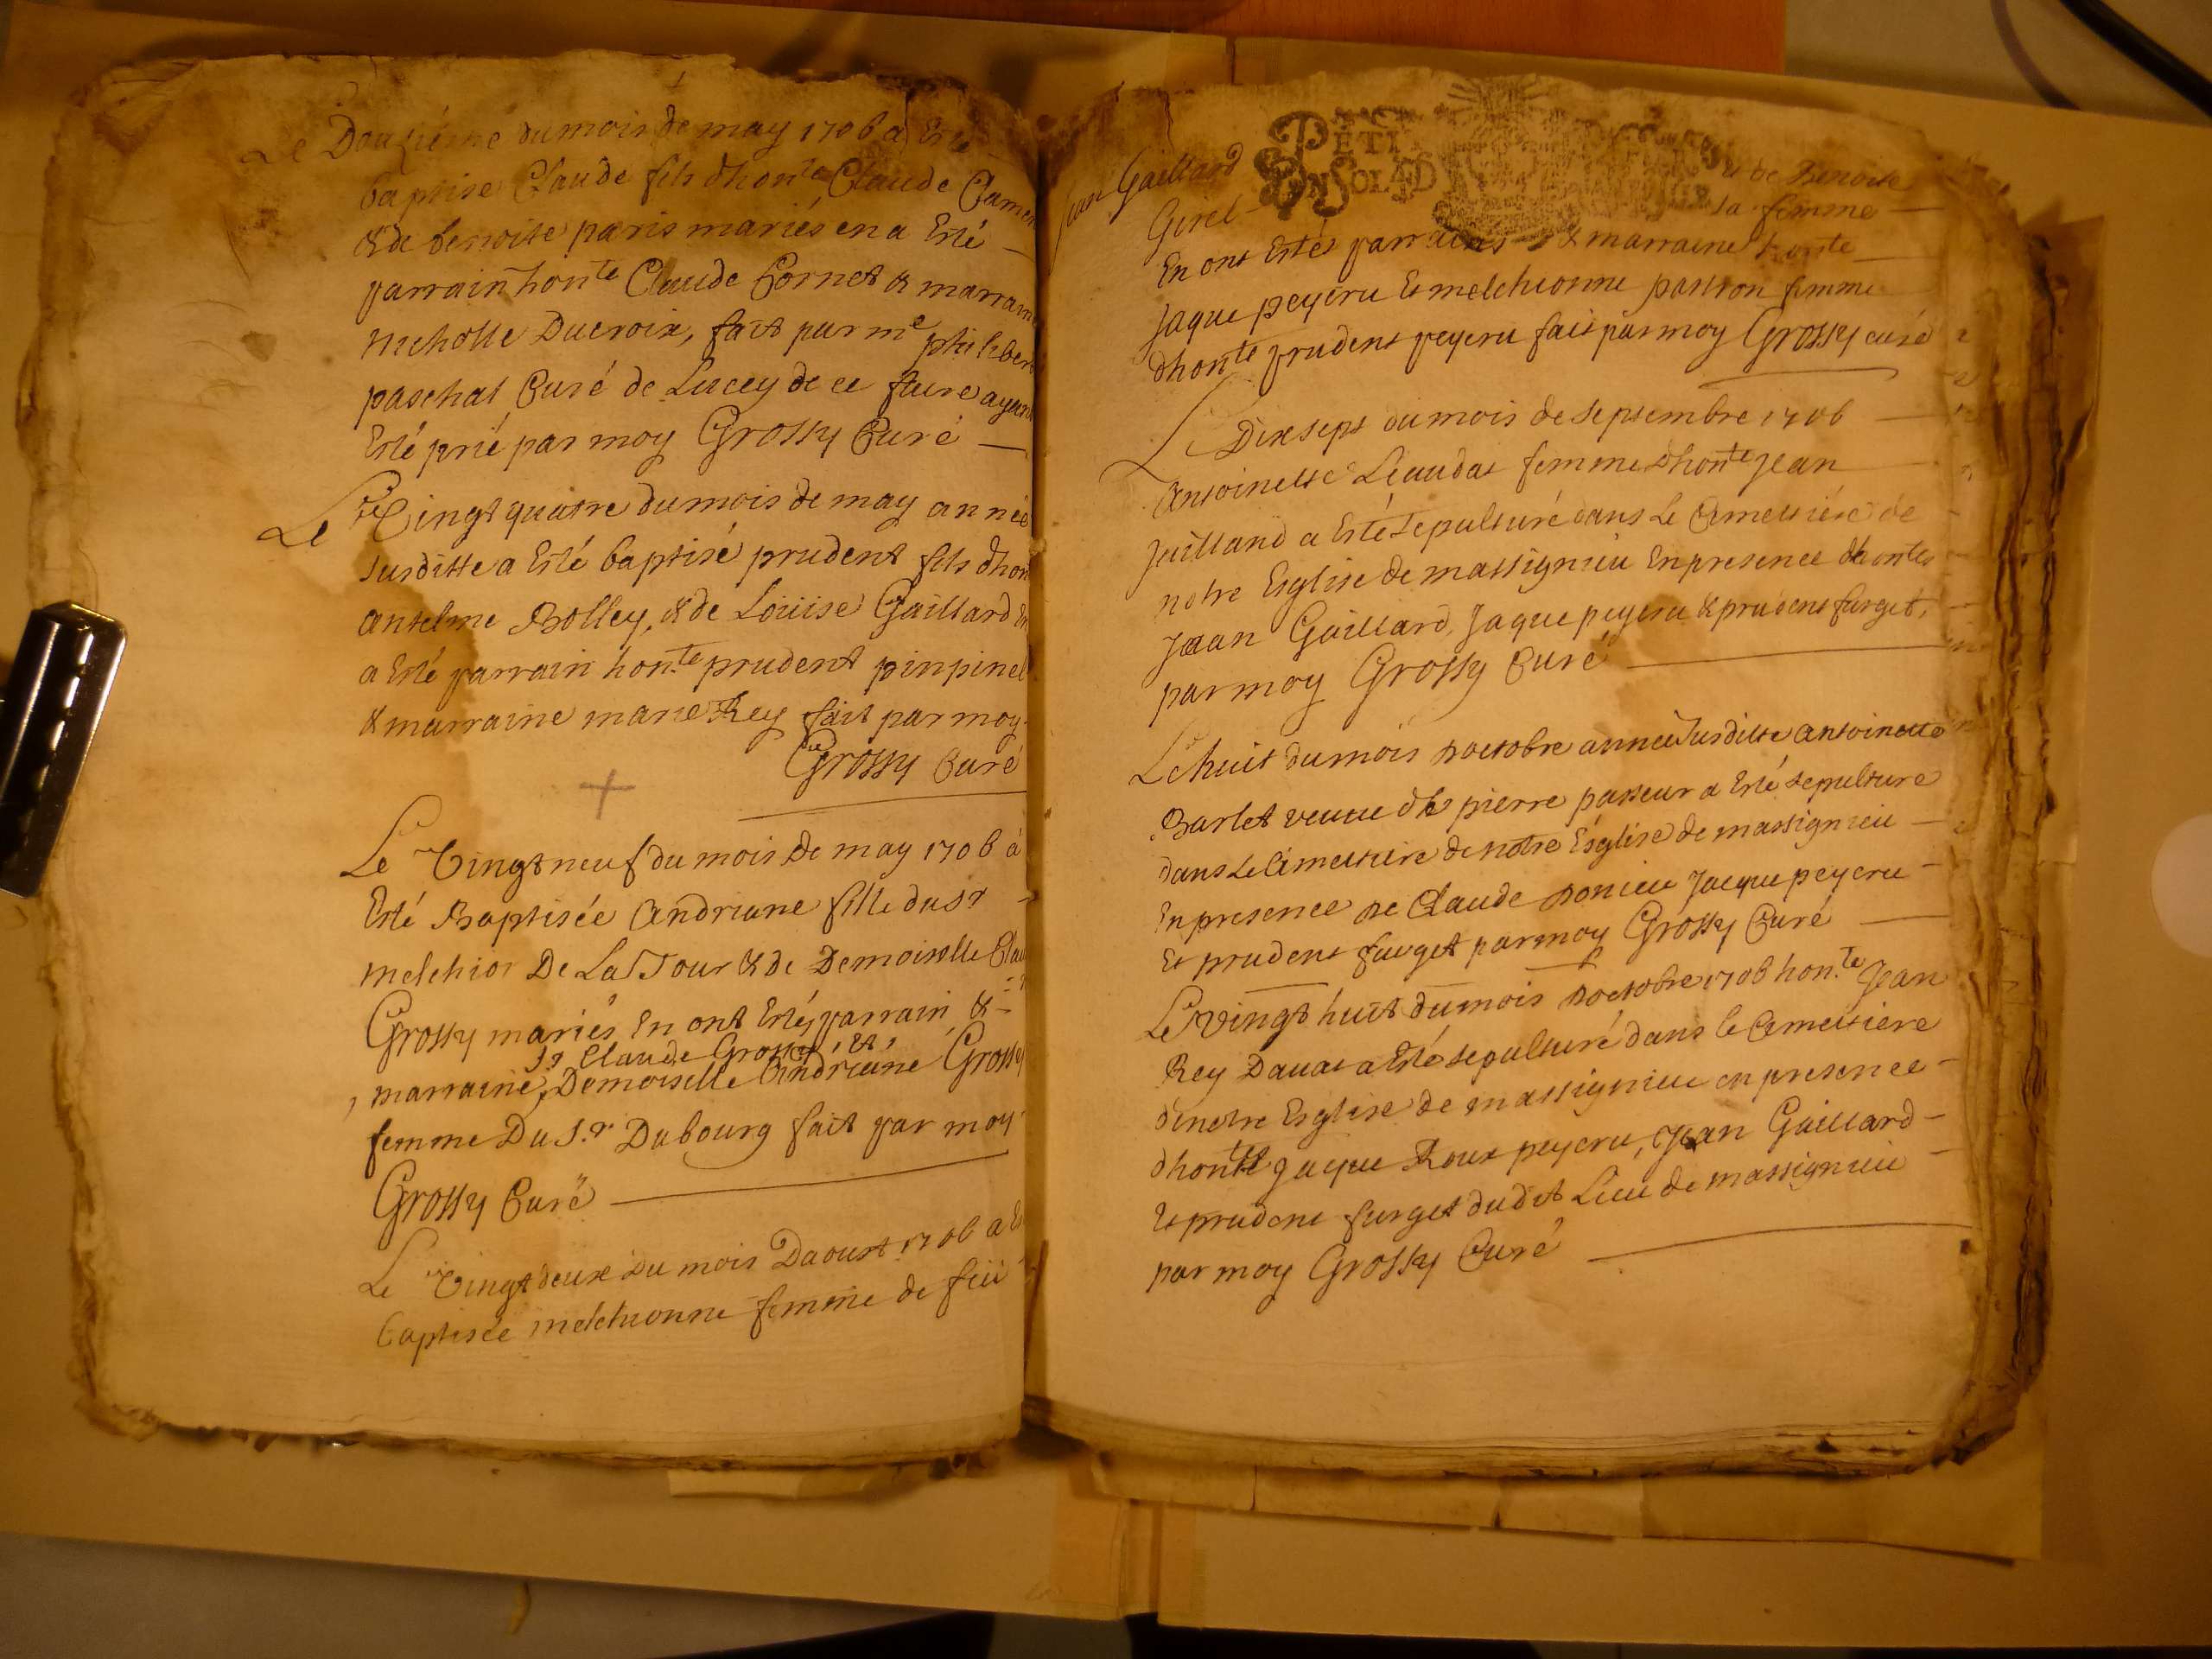 Le Douziéme du mois de may 1706 a Esté
baptise Claude fils dhonte Claude
& de benoite paris mariés en a Esté
parrain honte Claude Cornet & marraine
Nicholle Ducroix, fait par me philibert
paschal Curé de Lucey de ce faire ayant
Esté prié par moy Grossy Curé
Le Vingt quatre du mois de may année
susditte a Esté baptisé prudent fils dhon
anselme Bolley, & de Loüise Gaillard En
a Esté parrain hon.te prudent pinpinel
& marraine marie Rey fait par moy
Grossy Curé
Le Vingt neuf du mois de may 1706 à
Esté Baptisée Andriane fille du sr
melchior De La Tour & de Demoiselle Clau
Grossy mariés En ont Estés parrain &
sr Claude Grossy, &,
, marraine, Demoiselle Andriane Grossy
femme Du S.r Dubourg fait par moy
Grossy Curé
Le Vingt deux du mois Daoust 1706 a Es
baptisée melchionne femme de feu
Jean Gaillard
PETI
EN SOLD
& de Benoite
Girel sa femme
En ont Estés parrains & marraine honte
Jaque peycru Et melchionne passion femme
dhonte prudent peycru fait par moy Grossy curé
Le Dix sept du mois de septembre 1706
Antoinette Léaudat femme dhonte Jean
Juilland a Esté sepulturé dans Le Cimettiére de
notre Esglise de massignieu En presence dhontes
Jean Gaillard, Jaque peycru & prudent furget,
par moy Grossy Curé
Le huit du mois doctobre année susditte antoinette
Barlet veuve de pierre passeur a Esté sepulture
dans Le Cimettiere de notre Esglise de massignieu
En presence de Claude Donieu Jacque peycru
Et prudent furget par moy Grossy Curé
Le vingt huit du mois doctobre 1706 hon.te Jean
Rey Davat a Esté sepulturé dans le Cimettiere
de notre Esglise de massignieu en presence
dhonte Jaque Roux peycru, Jean Gaillard
Et prudent furget dudit Lieu de massignieu
par moy Grossy Curé